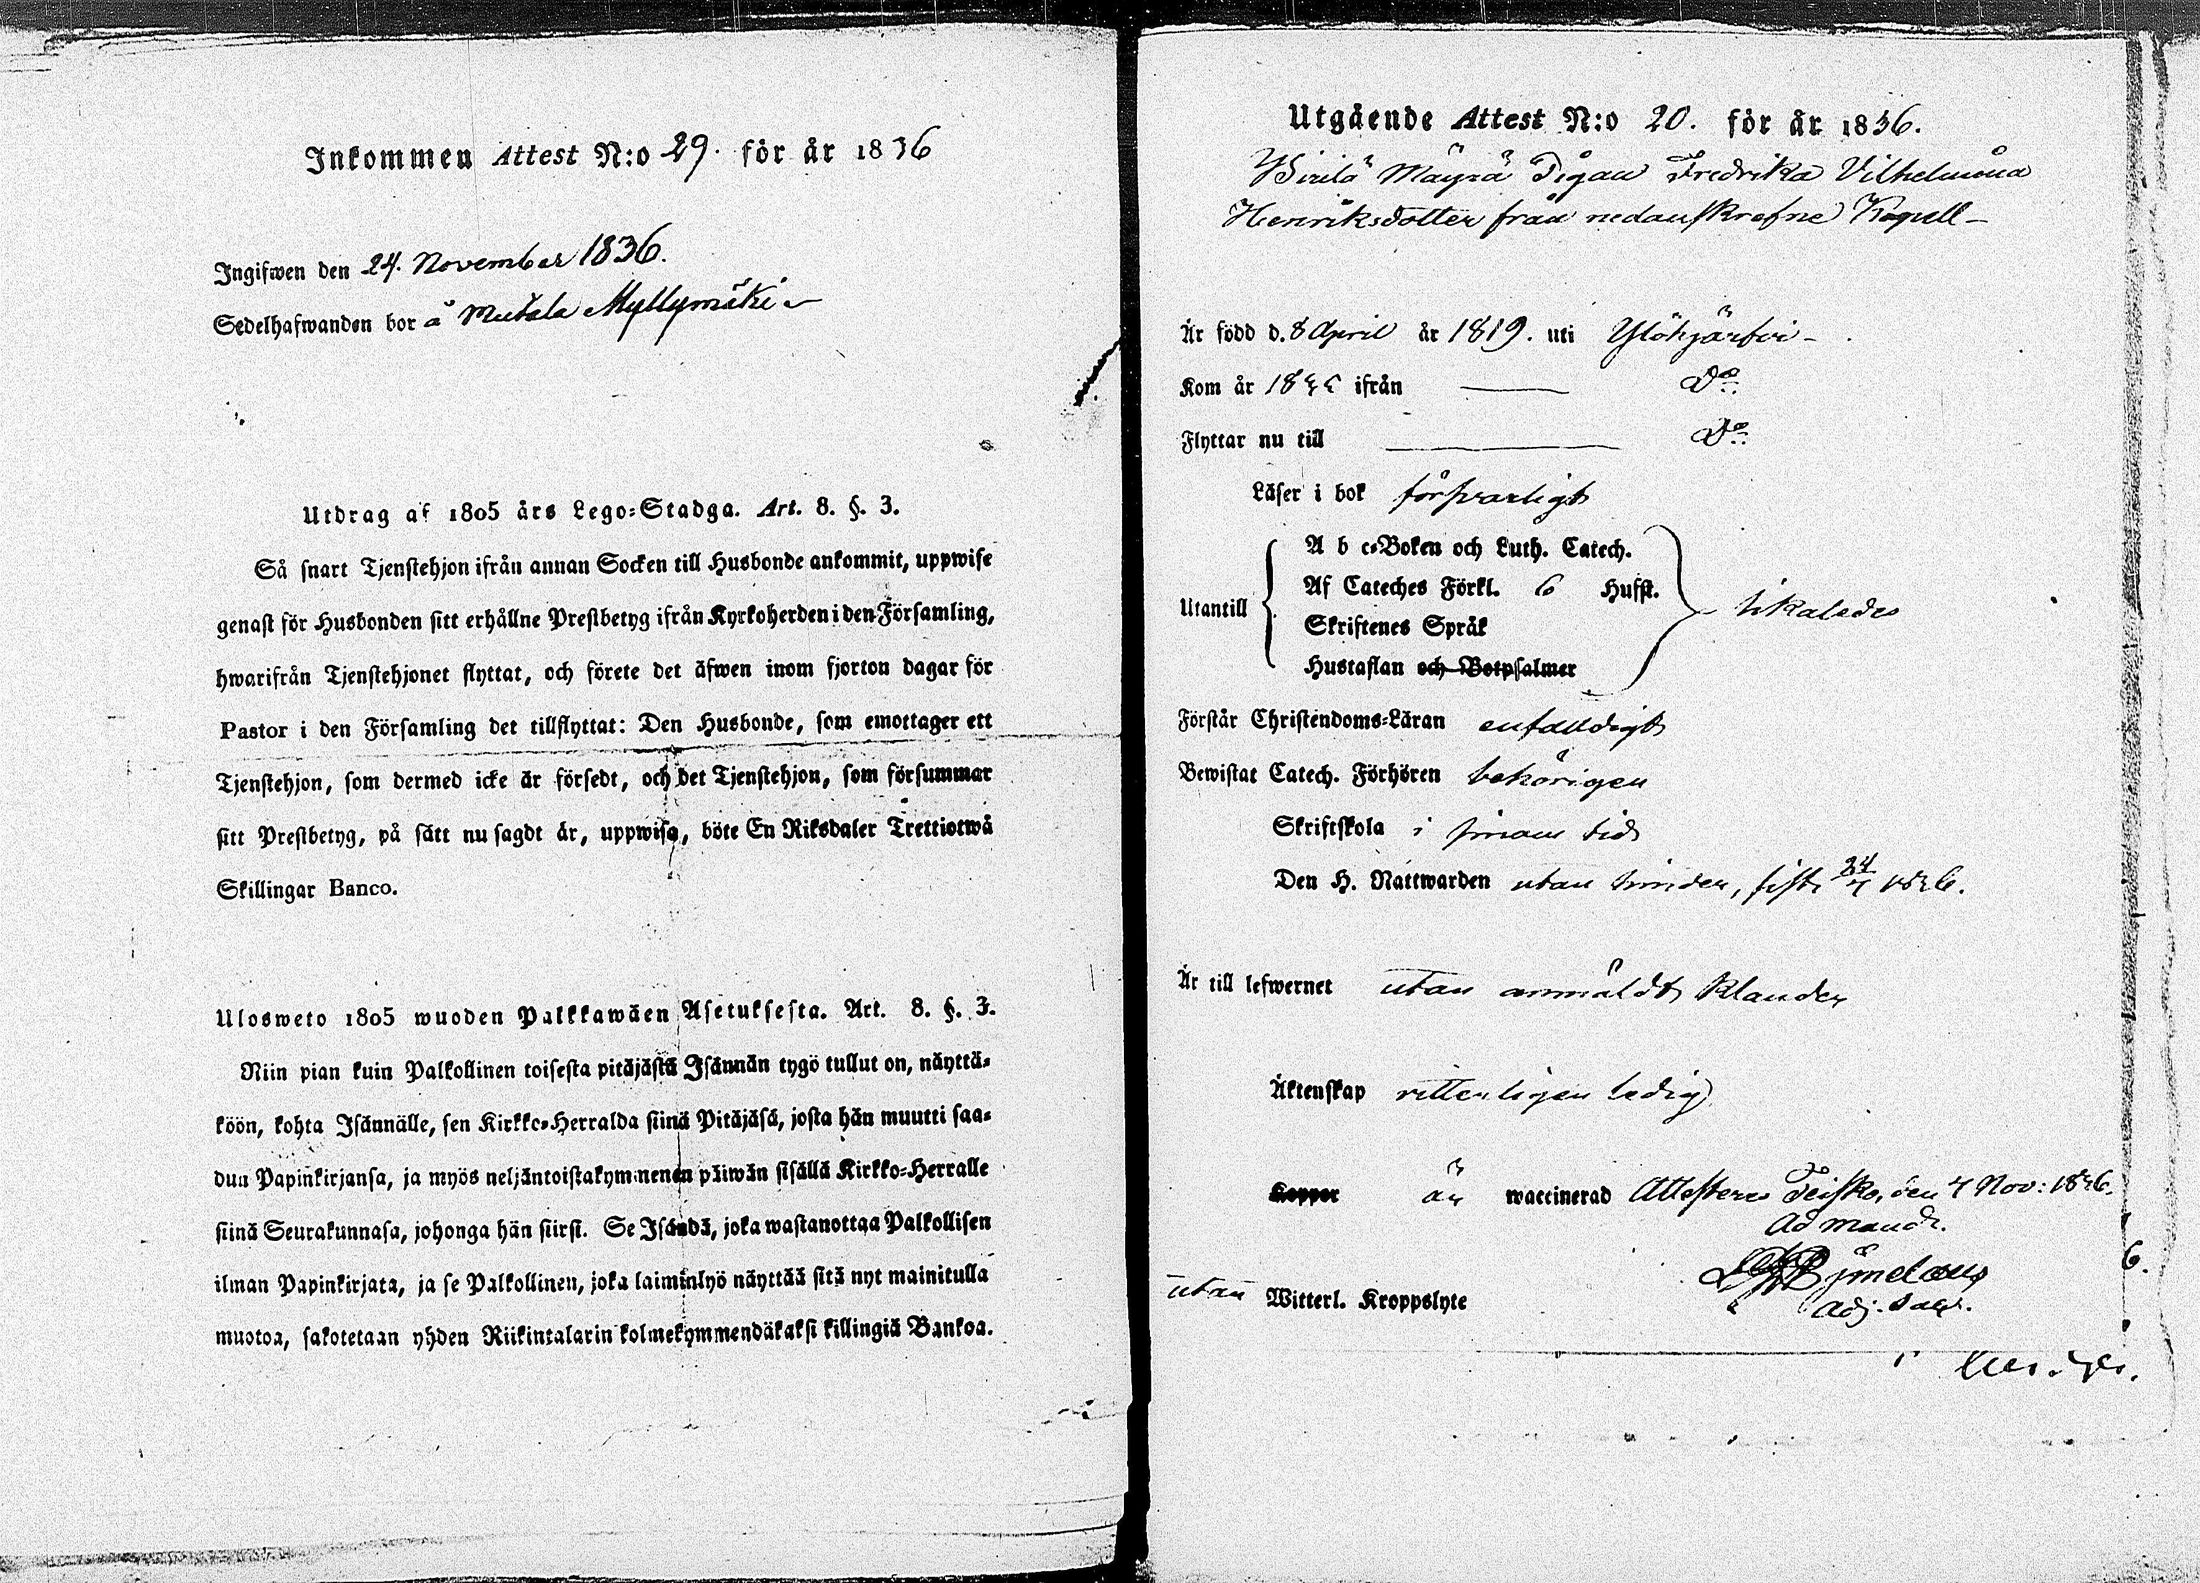 Inkommen Attest N:o 29. för år 1836
Ingifwen den 24. November 1836.
Sedelhafwanden bor å Mutala Myllymäki
Utdrag af 1805 års Lego-Stadga. Art. 8. §. 3.
Så snart Tjenstehjon ifrån annan Socken till Husbonde ankommit, uppwise
genast för Husbonden sitt erhållne Prestbetyg ifrån Kyrkoherden i den Församling,
hwarifrån Tjenstehjonet flyttat, och förete det äfwen inom fjorton dagar för
Pastor i den Församling det tillflyttat: Den Husbonde, som emottager ett
Tjenstehjon, som dermed icke är försedt, och det Tjenstehjon, som försummar
sitt Prestbetyg, på sätt nu sagdt är, uppwisa, böte En Riksdaler Trettiotwå
Skillingar Banco.
Ulosweto 1805 wuoden Palkkawäen Asetuksesta. Art. 8. §. 3.
Niin pian kuin Palkollinen toisesta pitäjästä Isännän tygö tullut on, näyttä-
köön, kohta Isännälle, sen Kirkko-Herralda siinä Pitäjäsä, josta hän muutti saa-
dun Papinkirjansa, ja myös neljäntoistakymmenen päiwän sisällä Kirkko-Herralle
siinä Seurakunnasa, johonga hän siirsi. Se Isändä, joka wastanottaa Palkollisen
ilman Papinkirjata, ja se Palkollinen, joka laiminlyö näyttää sitä nyt mainitulla
muotoa, sakotetaan yhden Riikintalarin kolmekymmendäkaksi killingiä Bankoa.
Utgående Attest N:o 20. för år 1836.
Mäyrä Pigan Fredrika Vilhelmina
Henriksdotter från nedanskrefne Kapell
Är född d. 8 April år 1819. uti Ylöhjärfvi
Kom år ifrån Do
Flyttar nu till Do
Läser i bok försvarligt
Utantill
A b c-Boken och Luth. Catech.
Af Cateches Förkl. 6 Hufst.
Skriftenes Språk
Hustaflan och Botpsalmer
likaledes
Förstår Christendoms-Läran enfaldigt
Bewistat Catech. Förhören behörigen
Skriftskola i sinom tid
Den H. Nattwarden utan hinder, sist 24/7 1836.
Är till lefwernet utan anmäldt klander
Äktenskap ledig
Koppor är waccinerad Attesterar Teisko, den 7 Nov: 1836.
Ad mand.
utan Witterl. Kroppslyte
Adj.